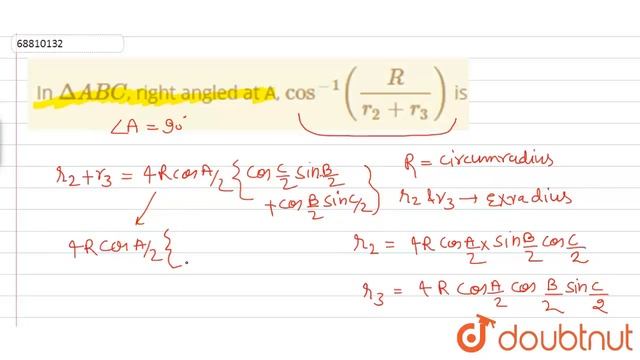 68810132
In ΔABC, right angled at A, cos⁻¹(R/(r₂ + r₃)) is
∠A = 90°
r₂+r₃ = 4R cos A/2 { cos C/2 sin B/2
+ cos B/2 sin C/2 }
4R cos A/2 {
R = circumradius
r₂ & r₃ → Exradius
r₂ = 4R cos A/2 × sin B/2 cos C/2
r₃ = 4R cos A/2 cos B/2 sin C/2
doubtnut